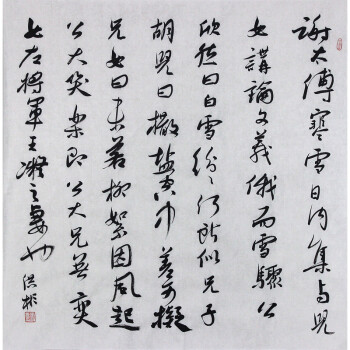 謝太傅寒雪日內集与兒
女講論文義俄而雪驟公
欣然曰白雪紛紛何所似兄子
胡兒曰撒鹽空中差可擬
兄女曰未若柳絮因風起
公大笑樂即公大兄無奕
女左將軍王凝之妻也 洪彬